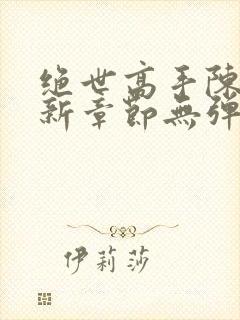 绝世高手陈
新章节无弹
伊莉莎